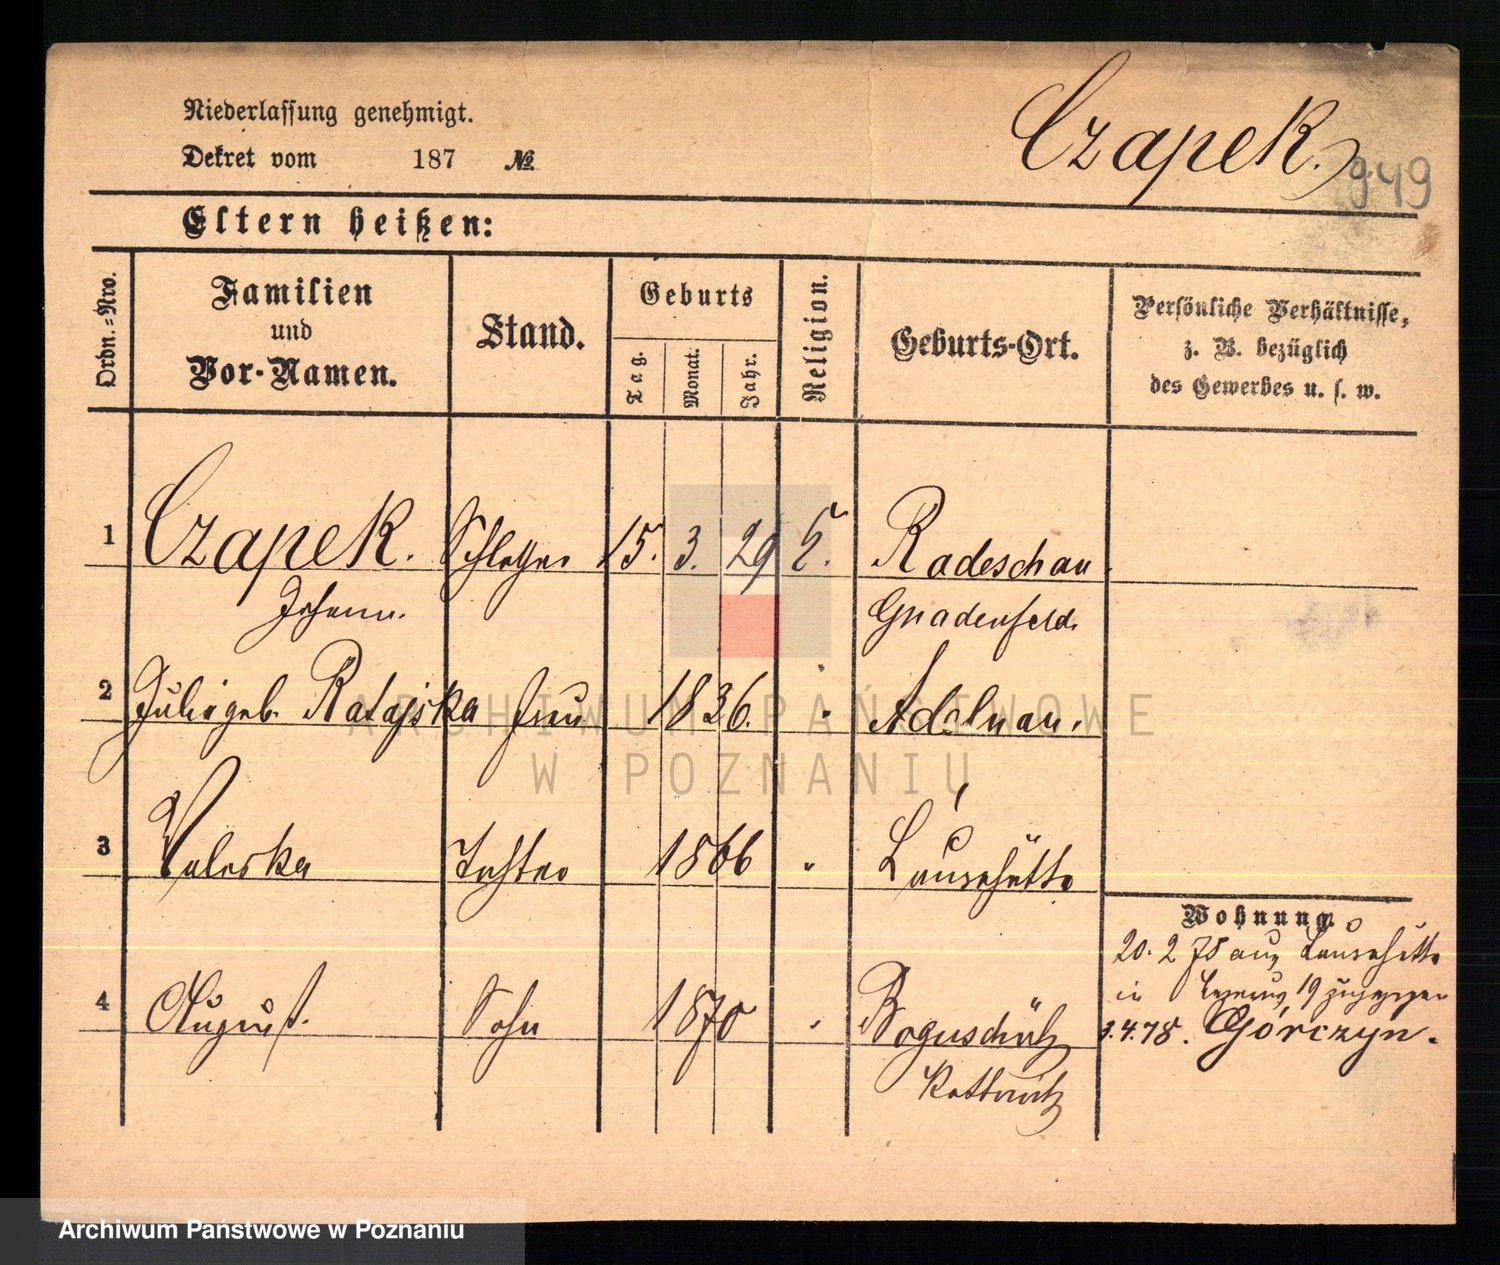 Niederlassung genehmigt.
Dekret vom 187 №
Czapek.
949
Eltern heißen:
Ordn.=Nro.
Familien
und
Vor-Namen.
Stand.
Geburts
Tag.
Monat.
Jahr.
Religion.
Geburts-Ort.
Persönliche Verhältnisse,
z. B. bezüglich
des Gewerbes u. s. w.
1 Czapek. 15. 3. 29 Radeschau
Johann. Gnadenfeld.
2 geb. Ratajska Frau 1836. Adelnau.
3 Valeska Tochter 1866 " Lauschütte
4 August. Sohn 1870 " Boguschütz
Kattowitz
Wohnung.
20. 2 78 aus Lauschütte
in 19 zugezogen
1.4.78. Górczyn.
ARCHIWUM PAŃSTWOWE
W POZNANIU
Archiwum Państwowe w Poznaniu